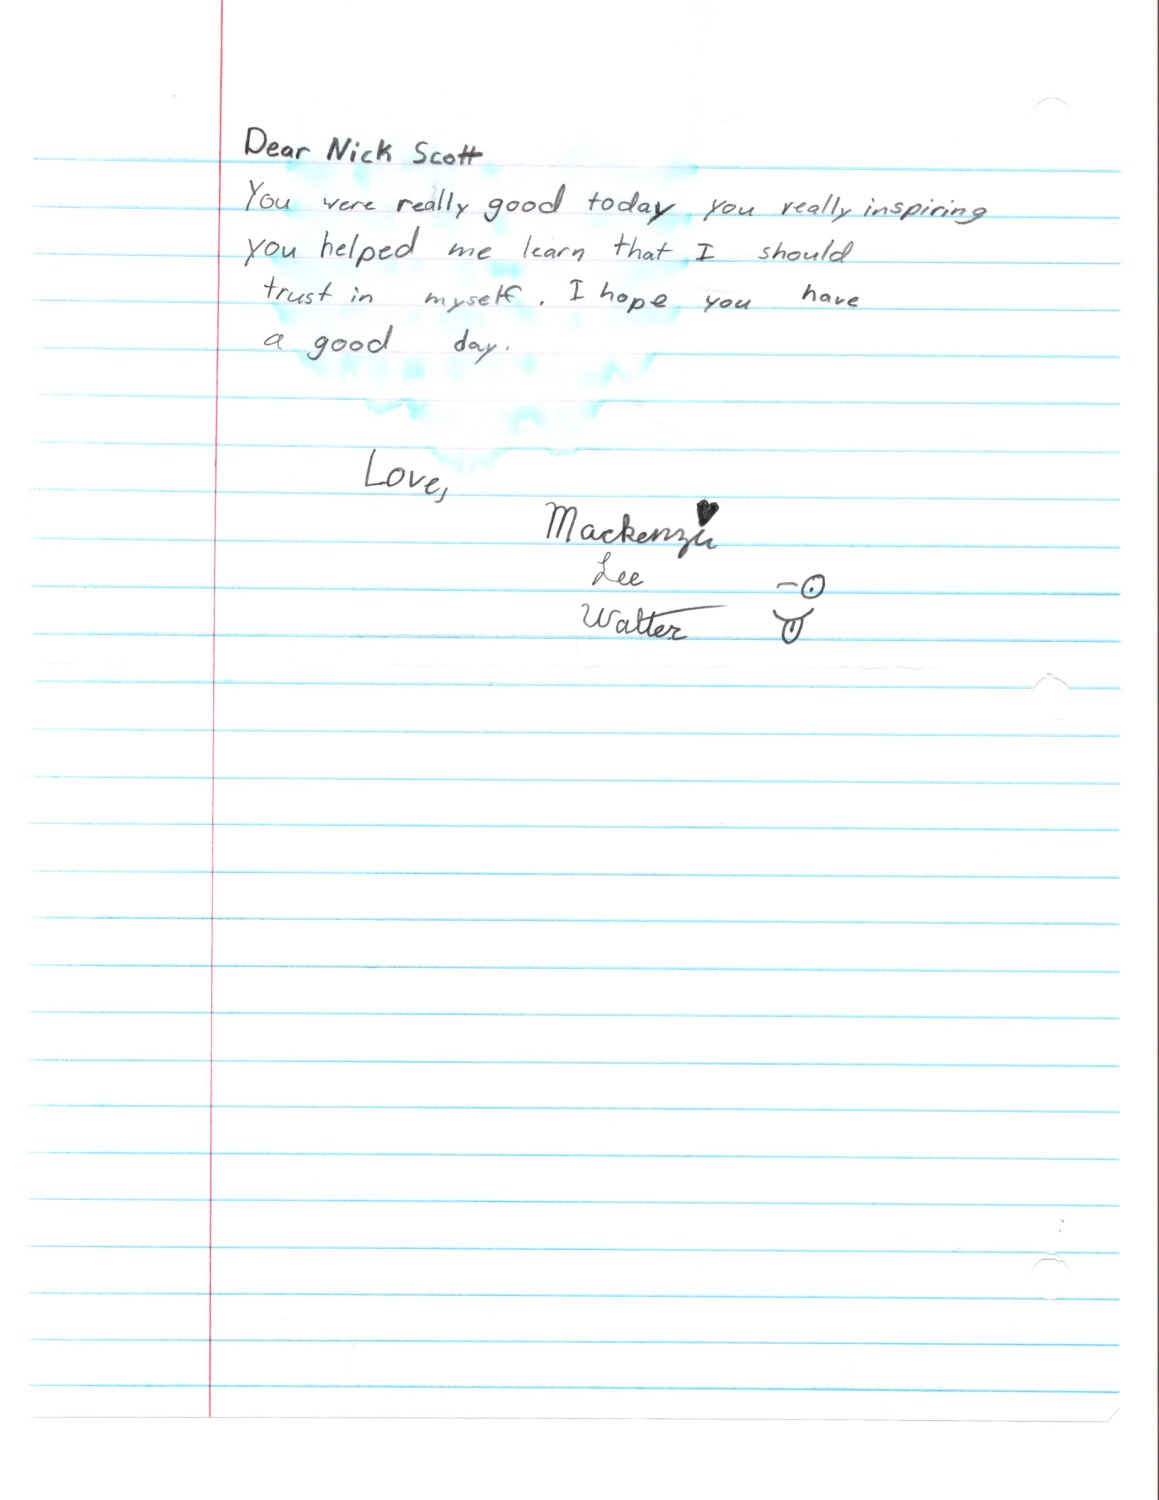 Dear Nick Scott
You were really good today you really inspiring
you helped me learn that I should
trust in myself. I hope you have
a good day.
Love,
Mackenzie
Lee
Walter